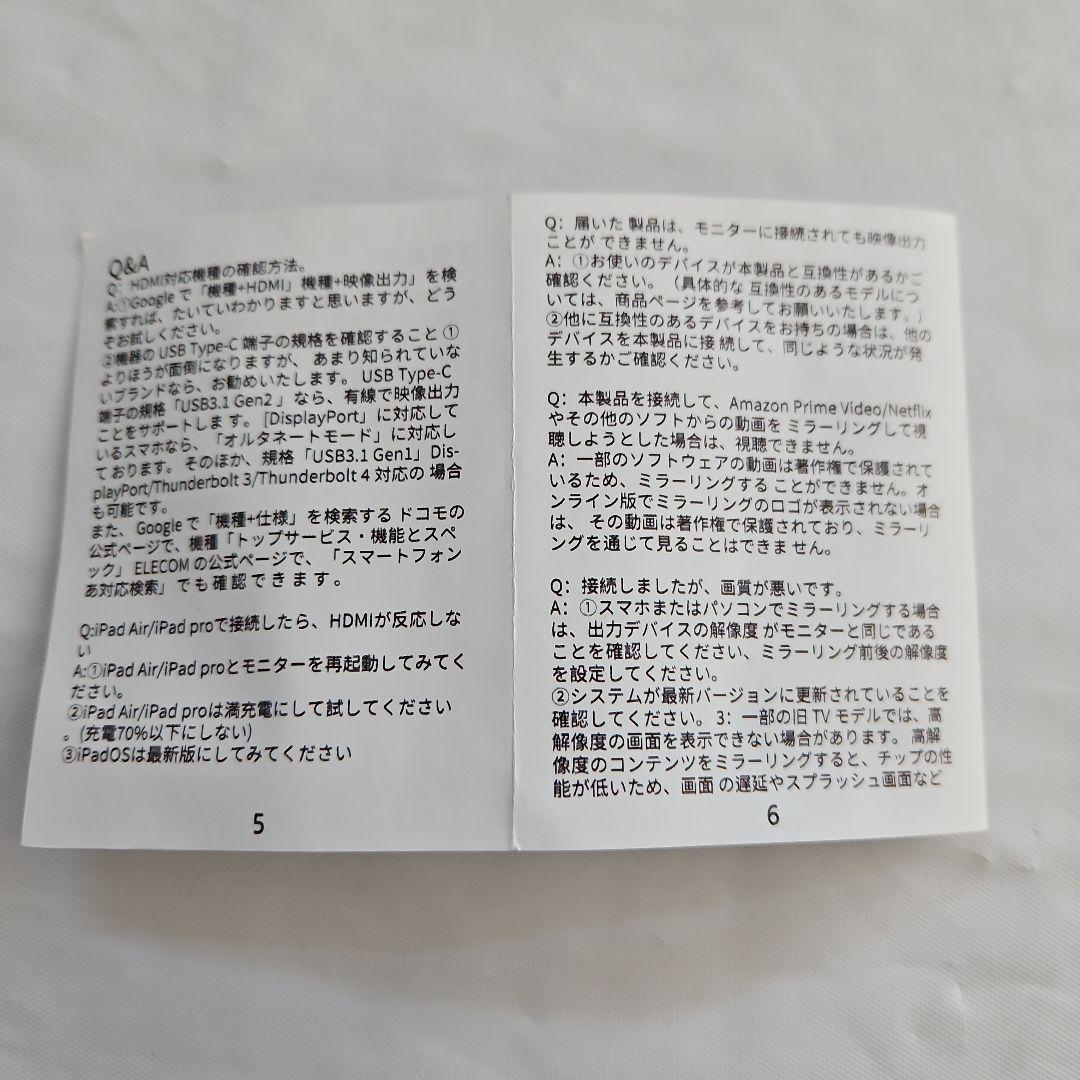 Q&A
Q：HDMI対応機種の確認方法。
A:①Googleで「機種+HDMI」機種+映像出力」を検
索すれば、たいていわかりますと思いますが、どう
ぞお試しください。
②機器の USB Type-C 端子の規格を確認すること ①
よりほうが面倒になりますが、 あまり知られていな
いブランドなら、お勧めいたします。 USB Type-C
端子の規格「USB3.1 Gen2 」なら、有線で映像出力
ことをサポートします。 [DisplayPort」に対応して
いるスマホなら、「オルタネートモード」に対応し
ております。 そのほか、規格「USB3.1 Gen1」Dis-
playPort/Thunderbolt 3/Thunderbolt 4 対応の 場合
も可能です。
また、 Google で「機種+仕様」を検索する ドコモの
公式ページで、機種「トップサービス・機能とスペ
ック」 ELECOM の公式ページで、 「スマートフォン
あ対応検索」でも確認できます。
Q:iPad Air/iPad proで接続したら、HDMIが反応しな
い
A:①iPad Air/iPad proとモニターを再起動してみてく
ださい。
②iPad Air/iPad proは満充電にして試してください
。(充電70%以下にしない)
③iPadOSは最新版にしてみてください
5
Q：届いた 製品は、モニターに接続されても映像出力
ことが できません。
A：①お使いのデバイスが本製品と互換性があるかご
確認ください。（具体的な 互換性のあるモデルにつ
いては、商品ページを参考してお願いいたします。）
②他に互換性のあるデバイスをお持ちの場合は、他の
デバイスを本製品に接 続して、同じような状況が発
生するかご確認ください。
Q：本製品を接続して、Amazon Prime Video/Netflix
やその他のソフトからの動画を ミラーリングして視
聴しようとした場合は、視聴できません。
A：一部のソフトウェアの動画は著作権で保護されて
いるため、ミラーリングする ことができません。オ
ンライン版でミラーリングのロゴが表示されない場合
は、 その動画は著作権で保護されており、ミラーリ
ングを通じて見ることはできま せん。
Q：接続しましたが、画質が悪いです。
A：①スマホまたはパソコンでミラーリングする場合
は、出力デバイスの解像度 がモニターと同じである
ことを確認してください、ミラーリング前後の解像度
を設定してください。
②システムが最新バージョンに更新されていることを
確認してください。 3：一部の旧 TV モデルでは、高
解像度の画面を表示できない場合があります。 高解
像度のコンテンツをミラーリングすると、チップの性
能が低いため、画面 の遅延やスプラッシュ画面など
6